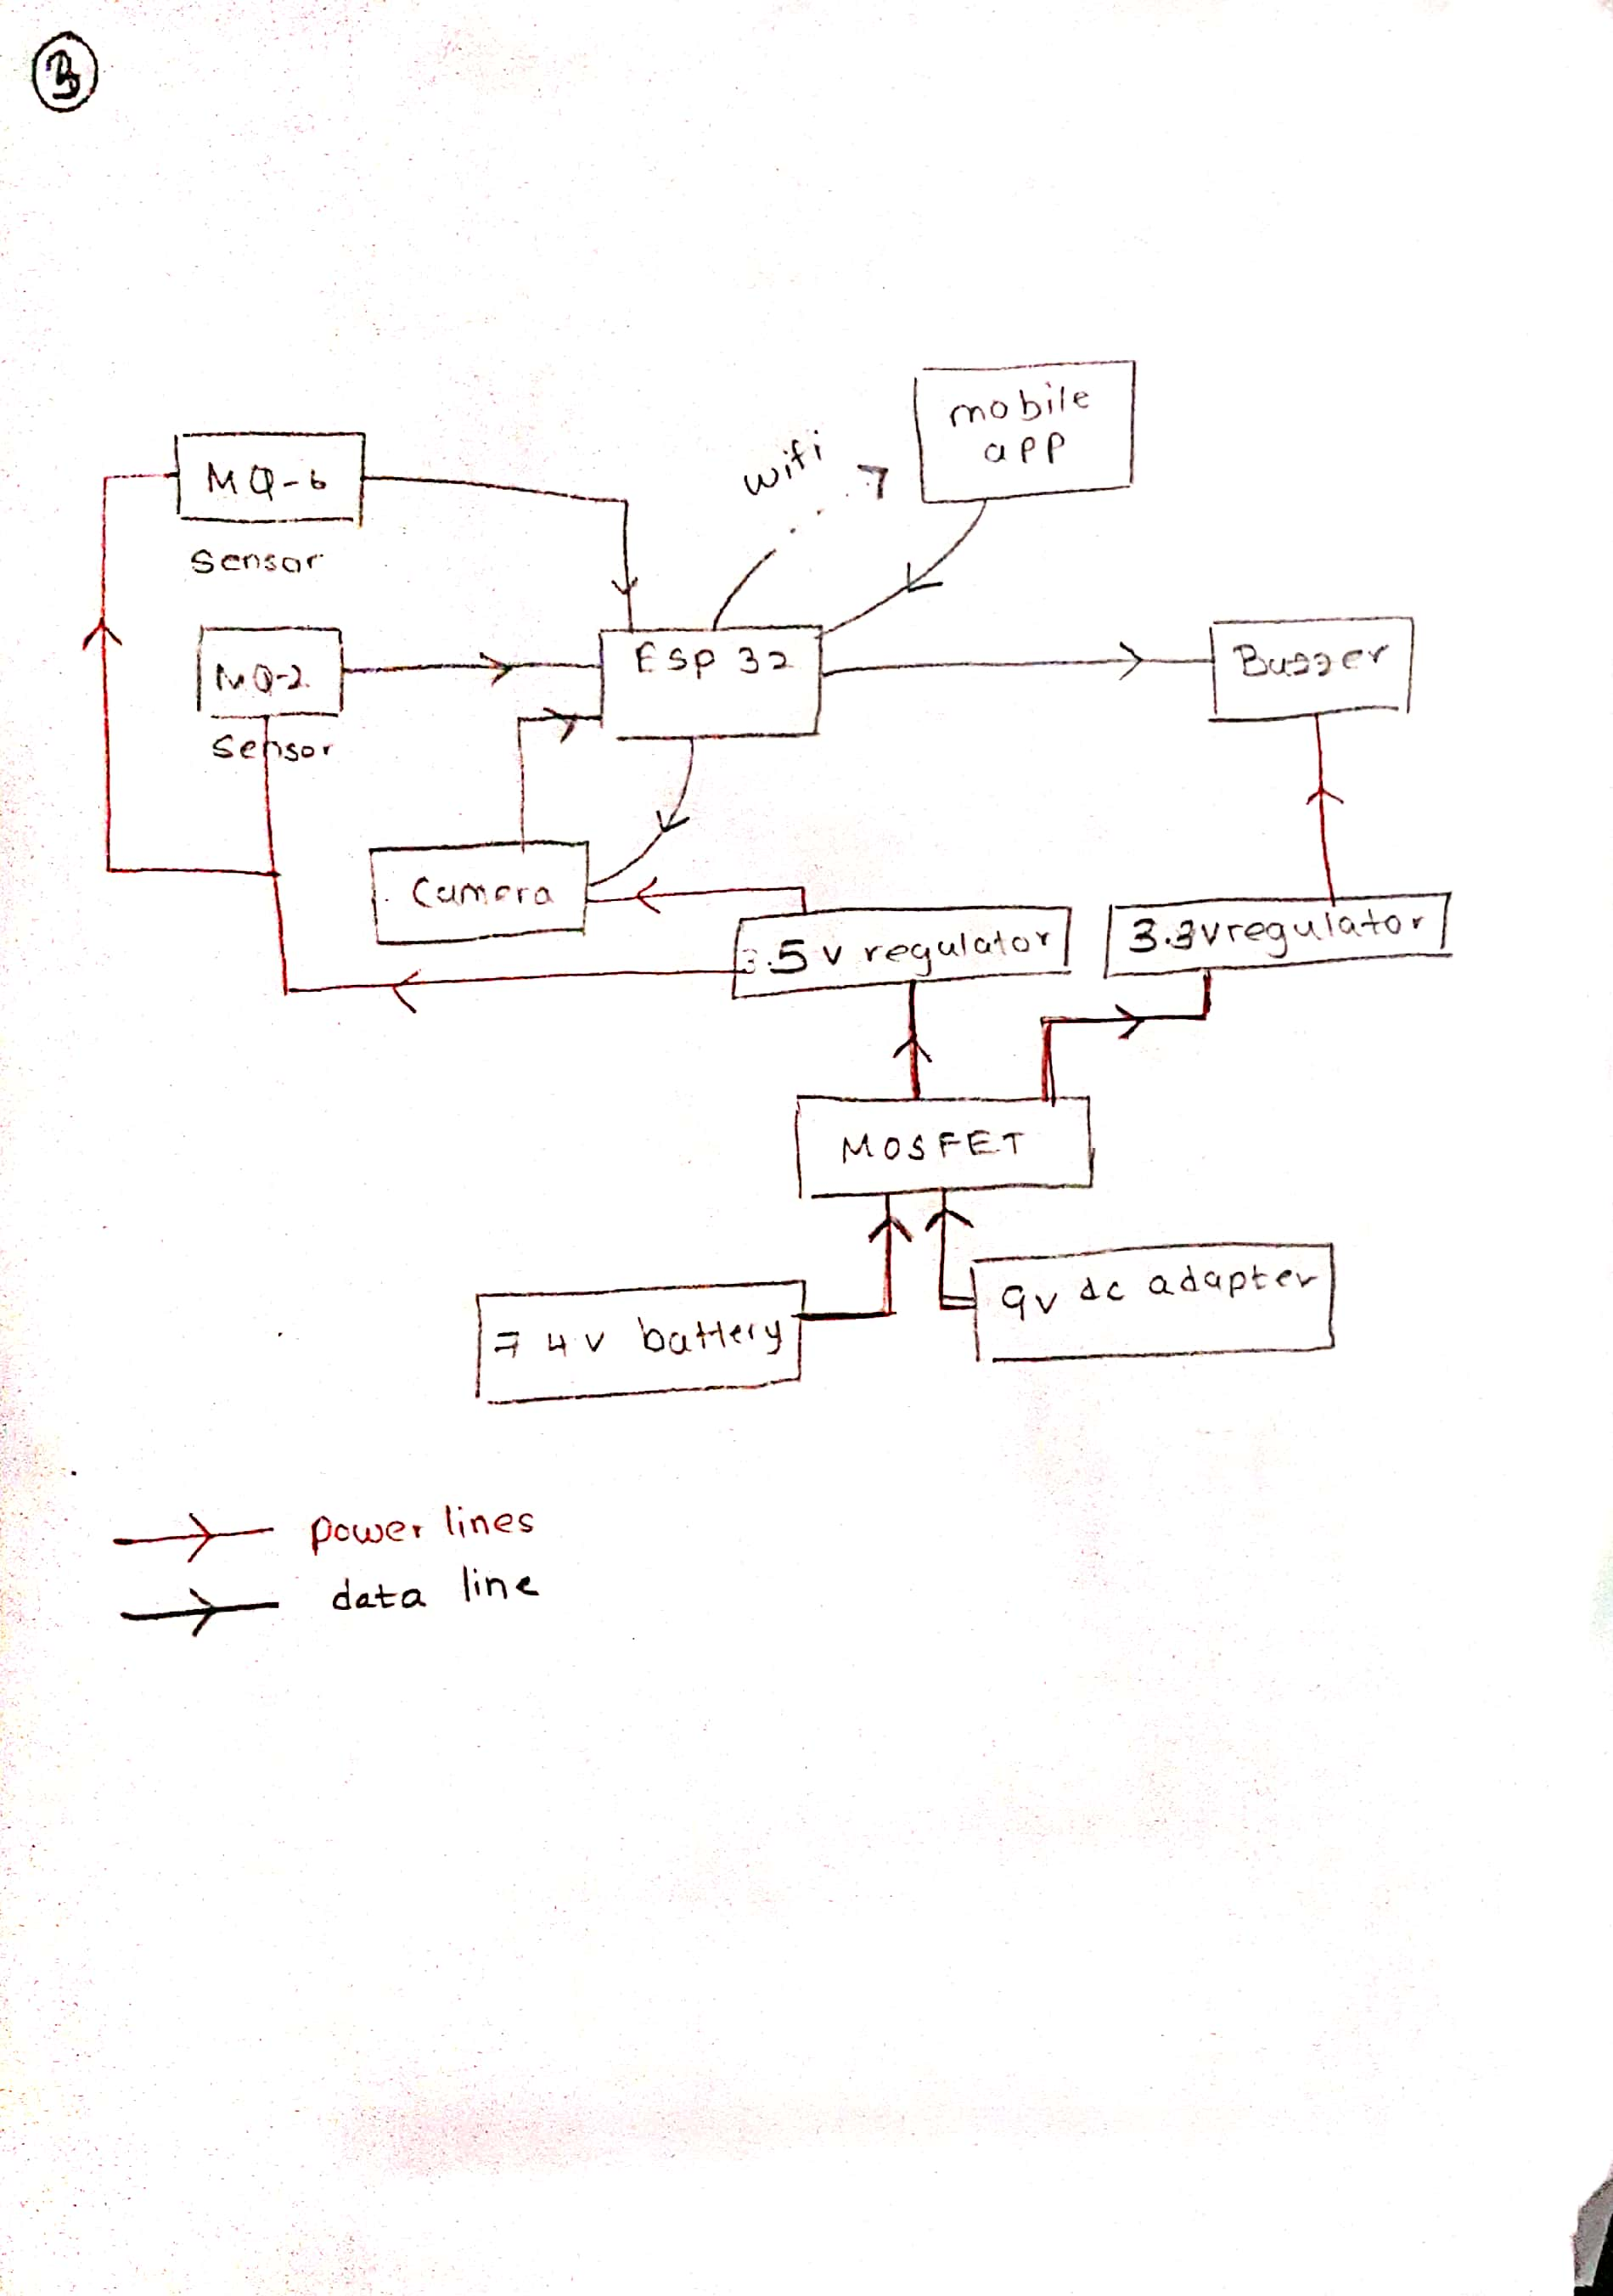 3
mobile
app
wifi
MQ-6
Sensor
ESP 32
Buzzer
MQ-2
Sensor
Camera
.5 v regulator
3.3v regulator
MOSFET
7 4 v battery
9v dc adapter
power lines
data line